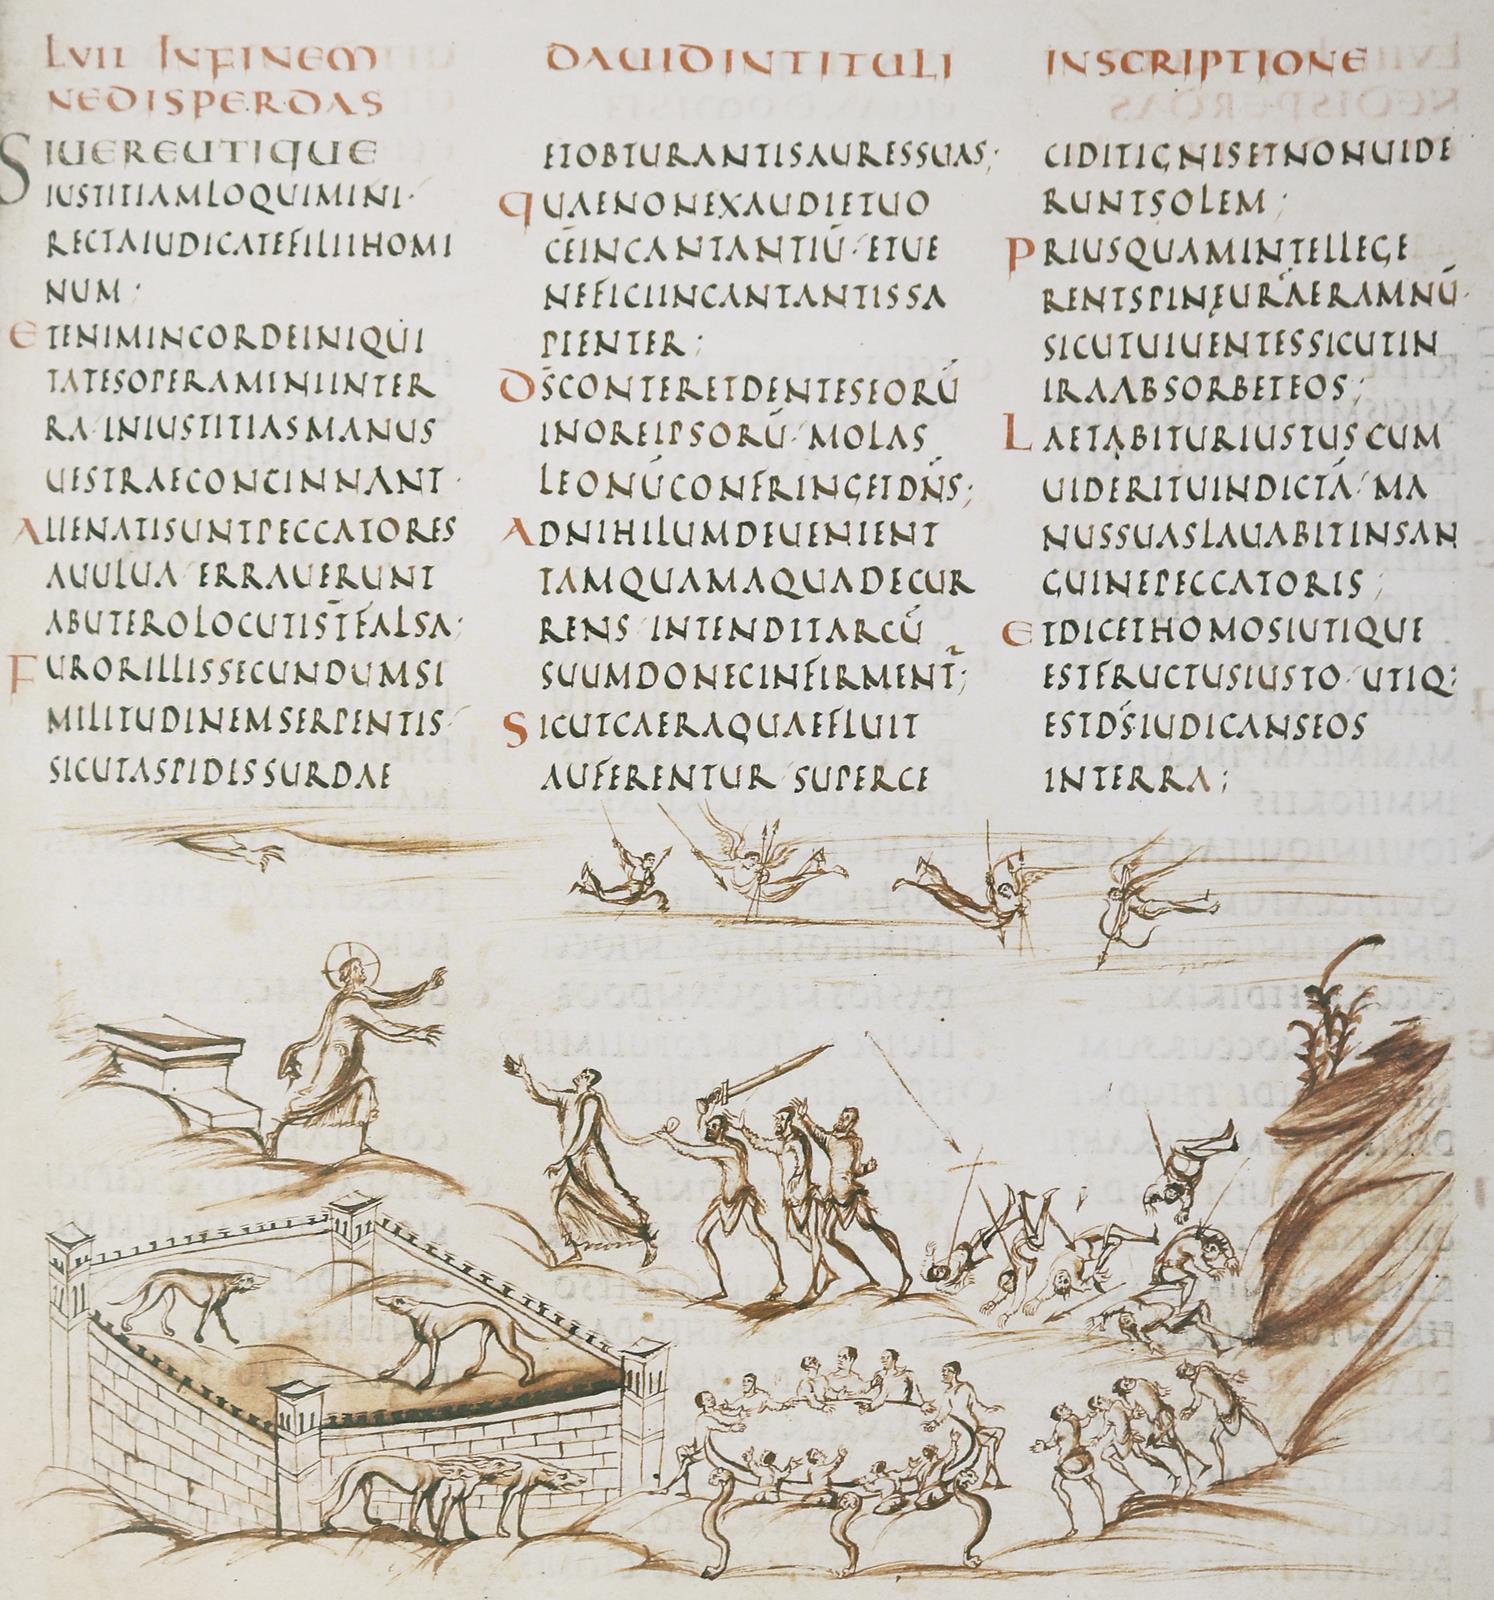 LVII INFINEM DAUIDINTITULI INSCRIPTIONE
NEDISPERDAS
SIUEREUTIQUE
IUSTITIAMLOQUIMINI·
RECTAIUDICATEFILIIHOMI
NUM·
ETENIMINCORDEINIQUI
TATESOPERAMINIINTER
RA·INIUSTITIASMANUS
UESTRAECONCINNANT·
ALIENATISUNTPECCATORES
AUULUA·ERRAUERUNT
ABUTEROLOCUTIST̄FALSA;
FURORILLISSECUNDUMSI
MILITUDINEMSERPENTIS·
SICUTASPIDISSURDAE
ETOBTURANTISAURESSUAS;
QUAENONEXAUDIETUO
CĒINCANTANTIŪ·ETUE
NEFICIINCANTANTISSA
PIENTER;
D̄SCONTERETDENTESEORŪ
INOREIPSORŪ·MOLAS
LEONŪCONFRINGETDN̄S;
ADNIHILUMDEUENIENT
TAMQUAMAQUADECUR
RENS·INTENDITARCŪ
SUUMDONECINFIRMENT̄;
SICUTCAERAQUAEFLUIT
AUFERENTUR·SUPERCE
CIDITIGNISETNONUIDE
RUNTSOLEM;
PRIUSQUAMINTELLEGE
RENTSPINEURAERAMNŪ·
SICUTUIUENTESSICUTIN
IRAABSORBETEOS;
LAETABITURIUSTUSCUM
UIDERITUINDICTĀ·MA
NUSSUASLAUABITINSAN
GUINEPECCATORIS;
ETDICETHOMOSIUTIQUE
ESTFRUCTUSIUSTO·UTIQ;
ESTD̄S·IUDICANSEOS
INTERRA;